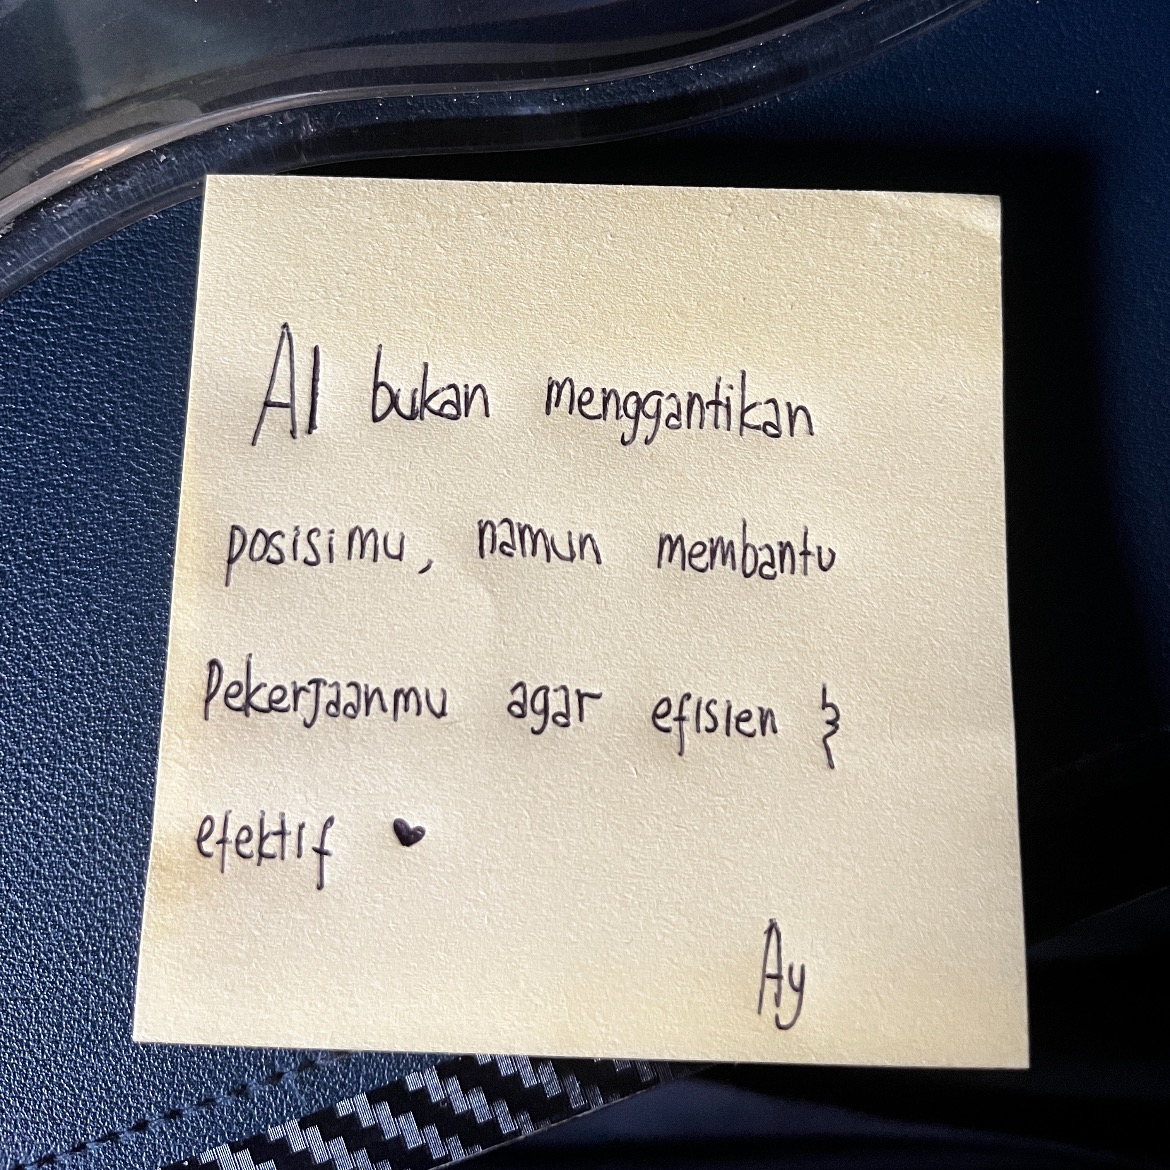 AI bukan menggantikan
posisimu, namun membantu
Pekerjaanmu agar efisien &
efektif ♥
Ay